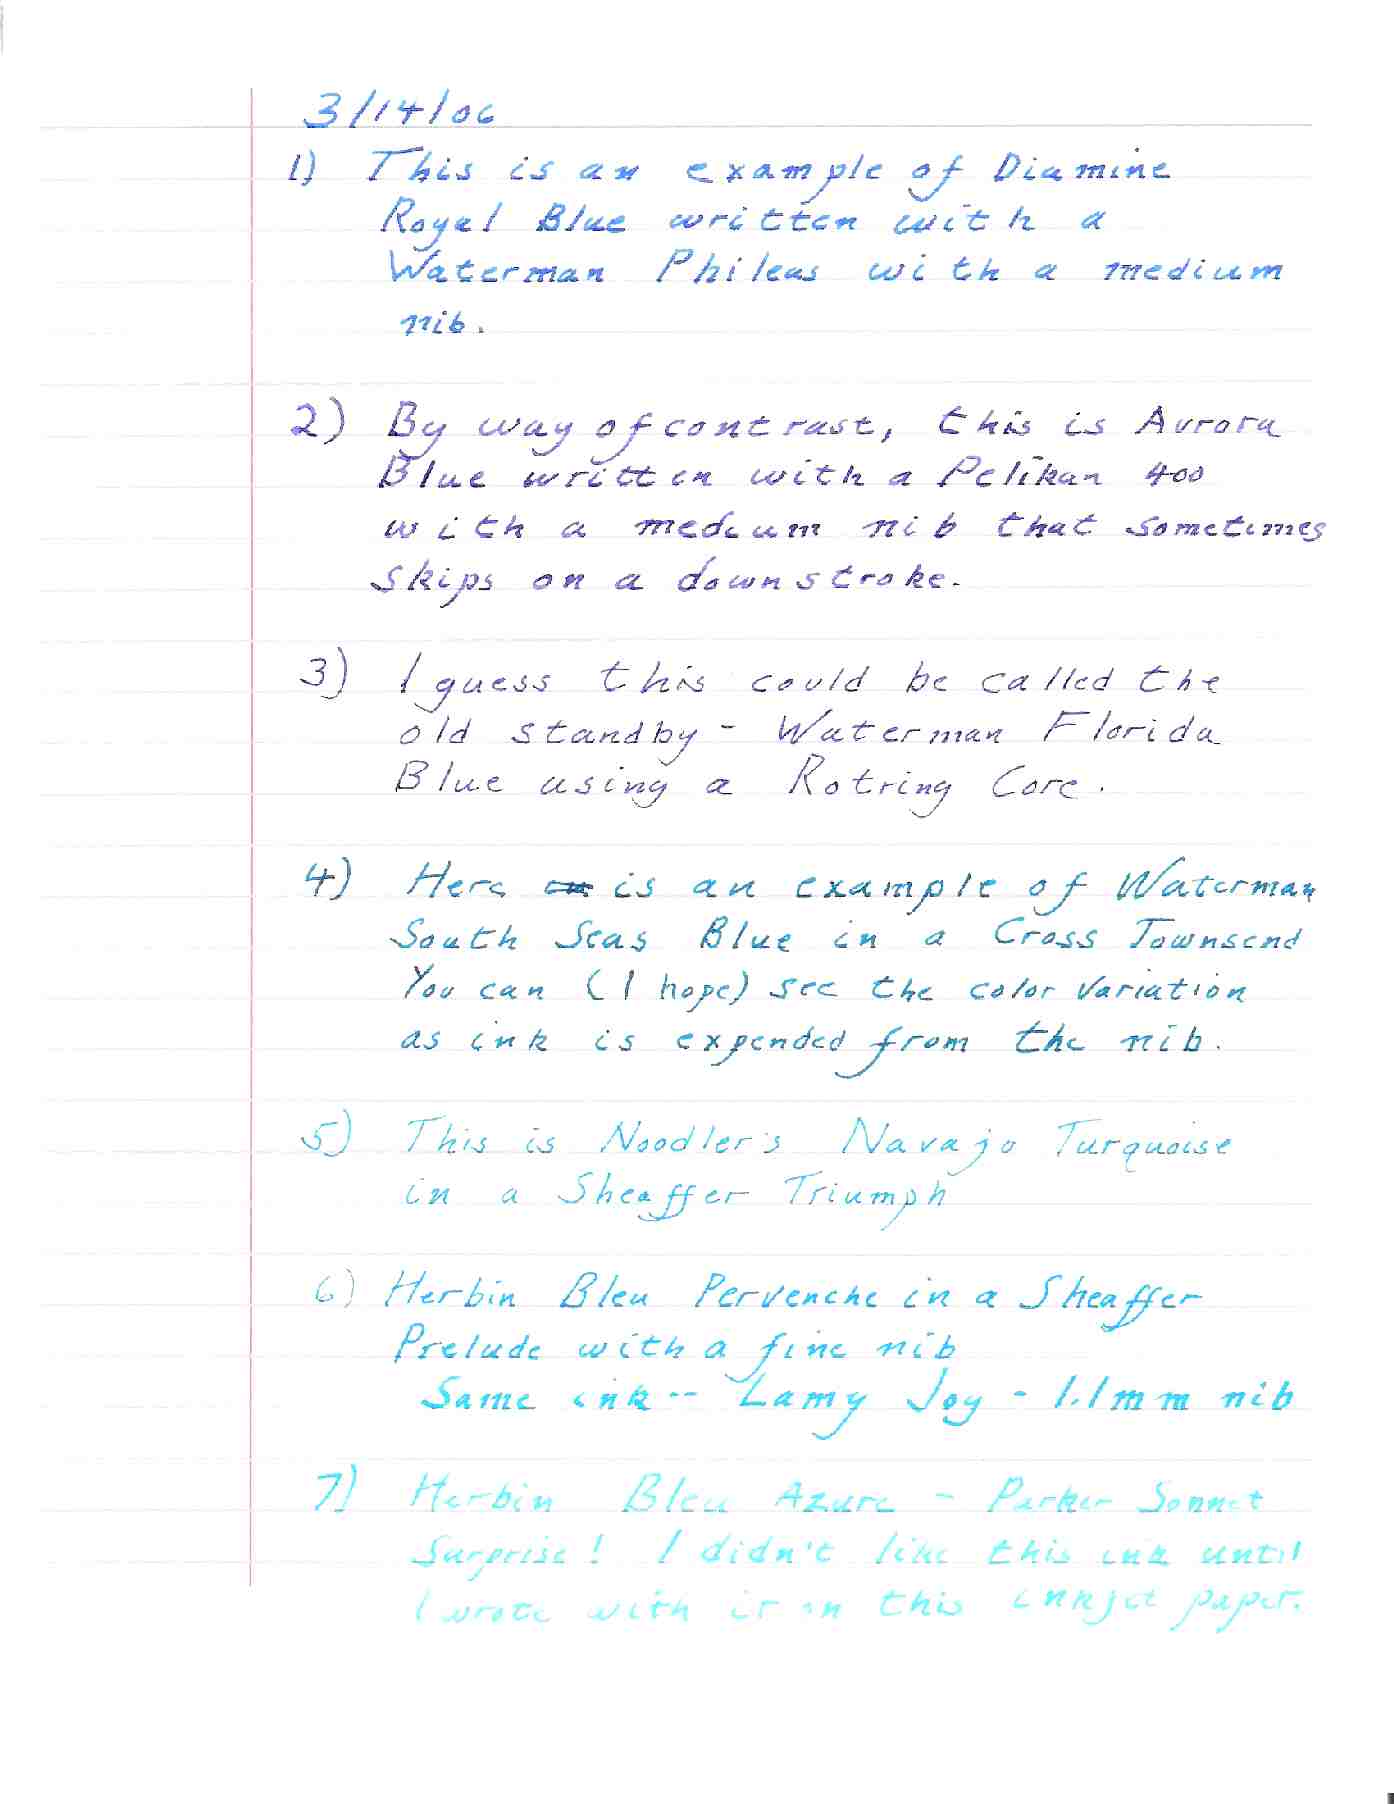 3/14/06
1) This is an example of Diamine
Royal Blue written with a
Waterman Phileas with a medium
nib.
2) By way of contrast, this is Aurora
Blue written with a Pelikan 400
with a medium nib that sometimes
skips on a downstroke.
3) I guess this could be called the
old standby - Waterman Florida
Blue using a Rotring Core.
4) Here is an example of Waterman
South Seas Blue in a Cross Townsend
You can (I hope) see the color variation
as ink is expended from the nib.
5) This is Noodler's Navajo Turquoise
in a Sheaffer Triumph
6) Herbin Bleu Pervenche in a Sheaffer
Prelude with a fine nib
Same ink -- Lamy Joy - 1.1mm nib
7) Herbin Bleu Azure - Parker Sonnet
Surprise! I didn't like this ink until
I wrote with it on this inkjet paper.